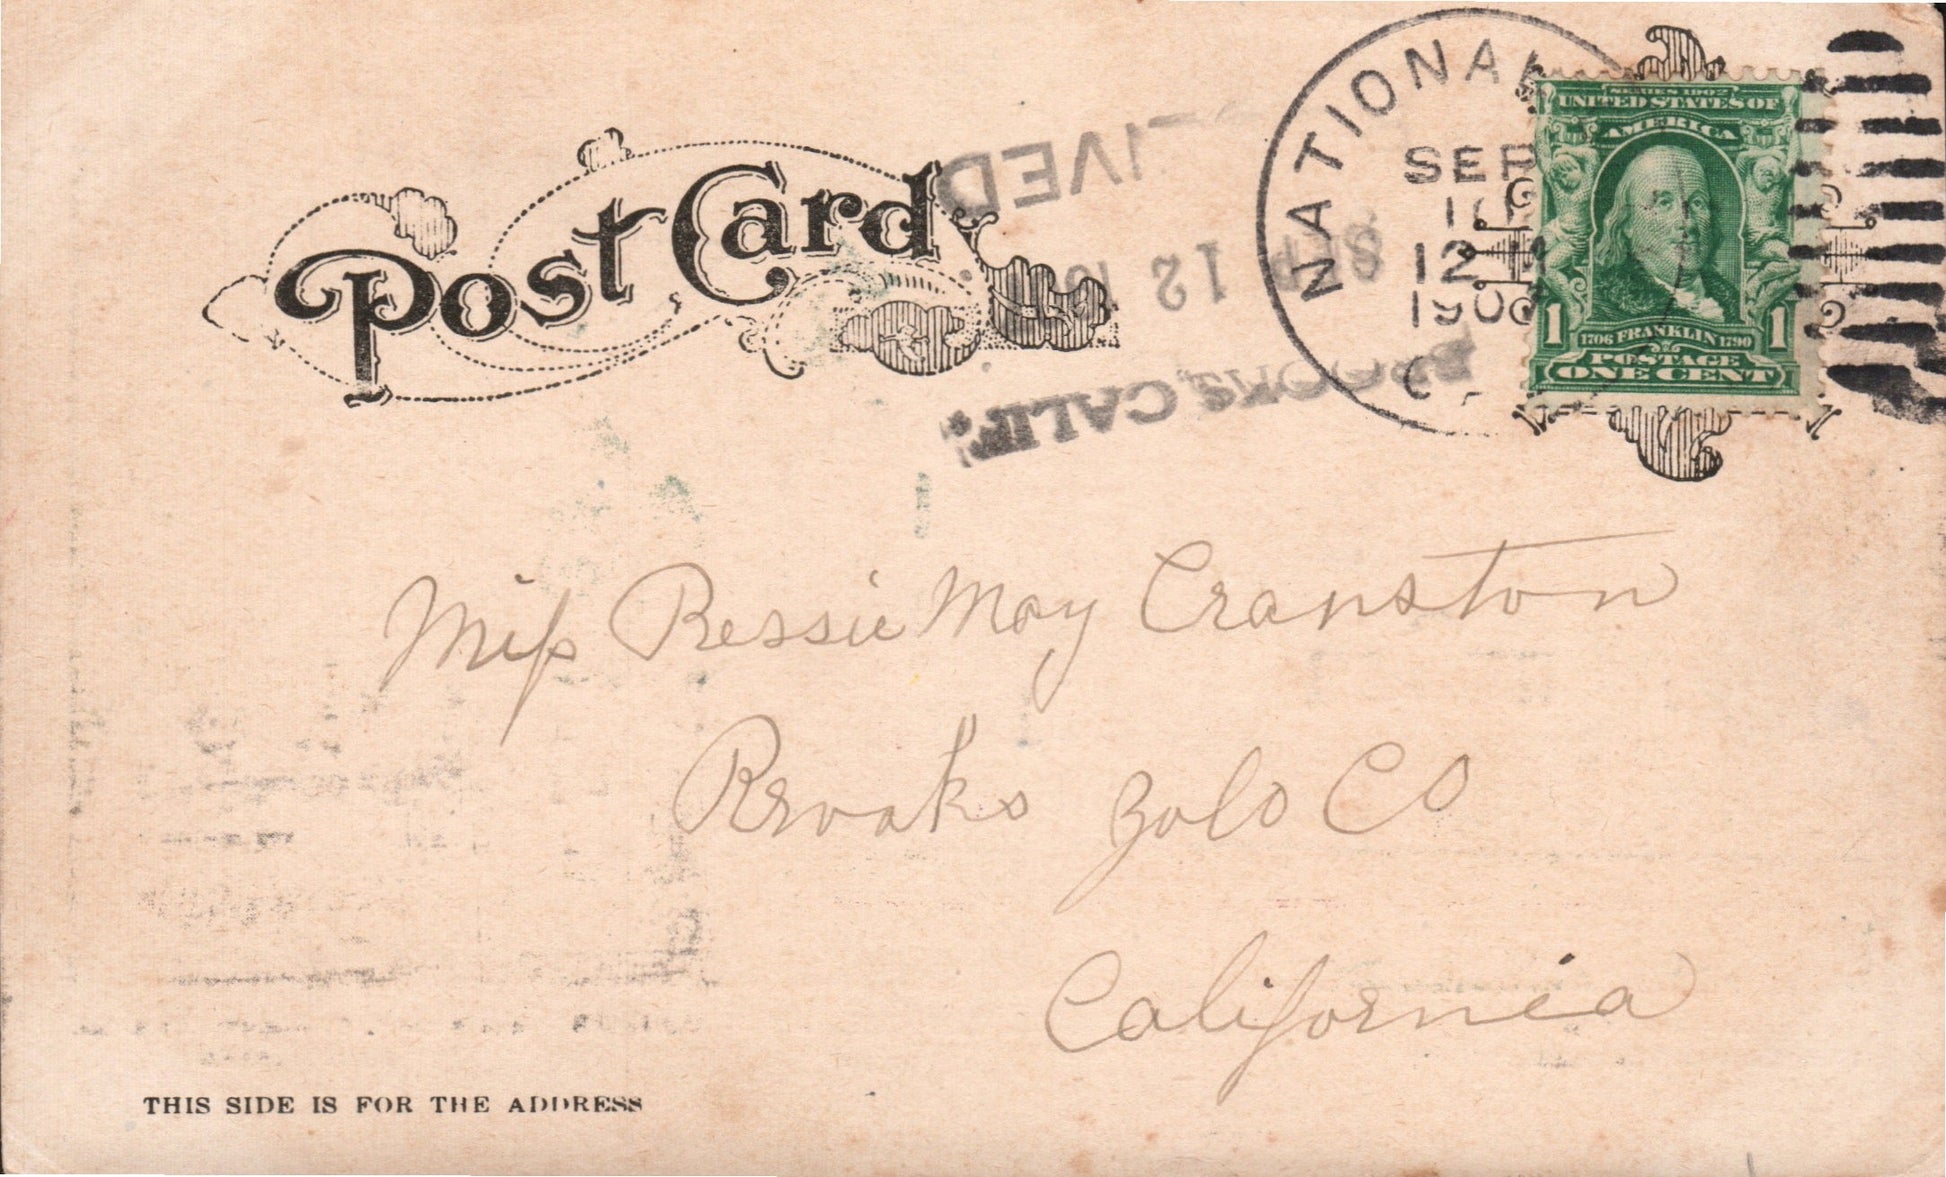 Post Card
NATIONAL
SEP
12 M
SERIES 1902
UNITED STATES OF
AMERICA
1706 FRANKLIN 1790
1 1
POSTAGE
ONE CENT
SEP 12
CALIF.
Miss Bessie May Cranston
Brooks Yolo Co
California
THIS SIDE IS FOR THE ADDRESS